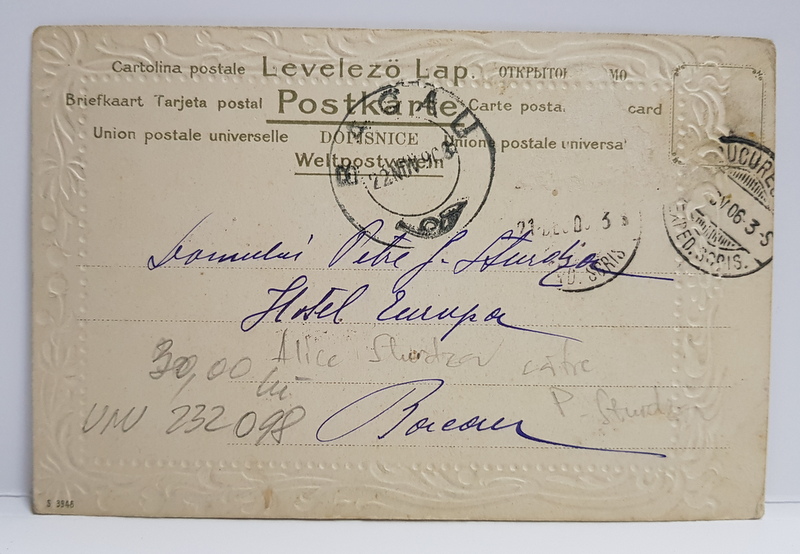 Cartolina postale Levelező Lap. ОТКРЫТО МО
Briefkaart Tarjeta postal Postkarte Carte posta card
Union postale universelle DOPISNICE Unione postale universa
Weltpostverein
BACAU
22 NOV 906
BUCURE
06·3-S
EXPED. SCRIS.
21 3 S
D. SCRIS
Domnului Petre G. Sturdza
Hotel Europa
Alice Sturdza către
P. Sturdza
30,00 lei
UMV 232098
Bacau
S 3946